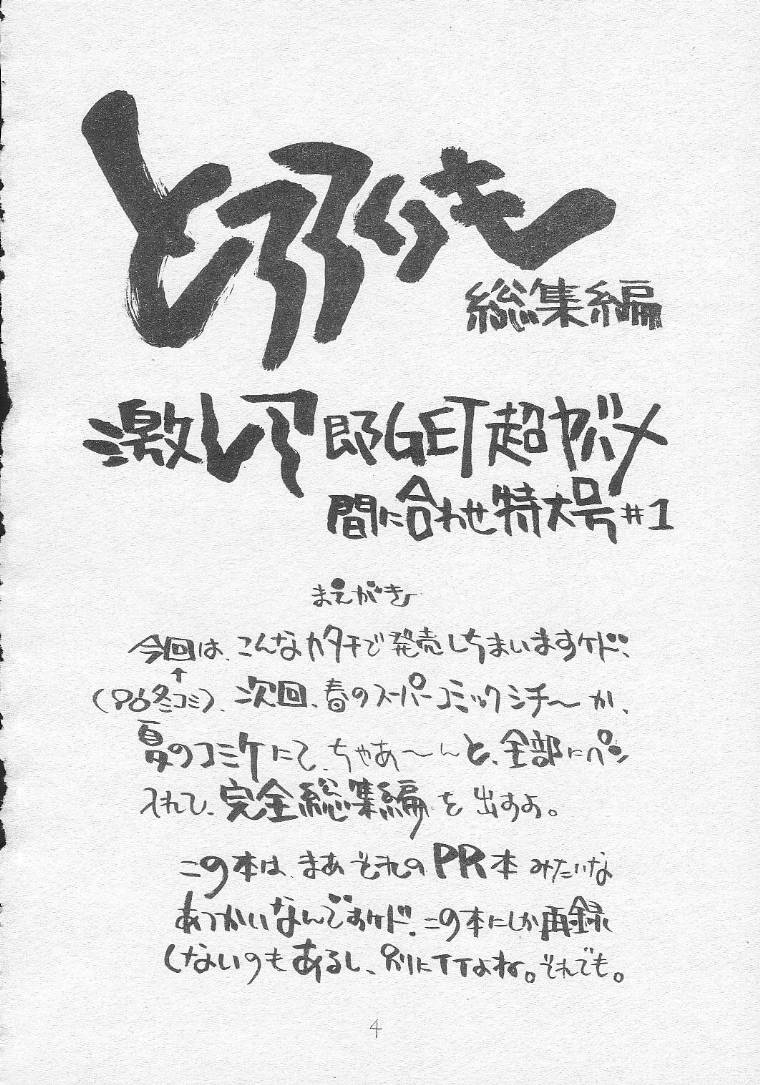 とろろいも
総集編
激レア即GET超ヤバメ
間に合わせ特大号#1
まえがき
今回は、こんなカタチで発売しちまいますケド、
(96冬コミ)、次回、春のスーパーコミックシチ〜か、
夏のコミケにて、ちゃあ〜んと、全部にペン
入れて、完全総集編を出すよ。
この本は、まあそれのPR本みたいな
あつかいなんですケド、この本にしか再録
しないのもあるし、別にイイよね。それでも。
4